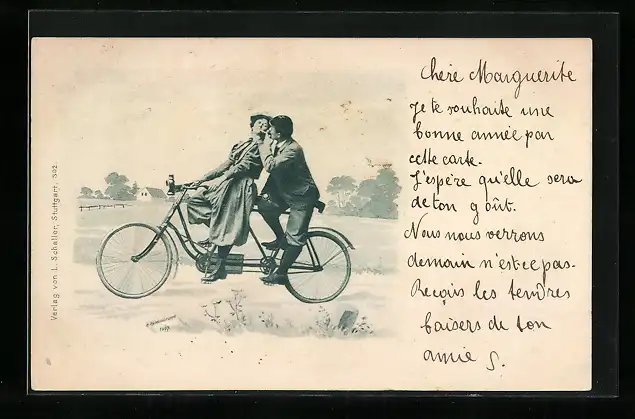 Chère Marguerite
Je te souhaite une
bonne année par
cette carte.
J'espère qu'elle sera
de ton goût.
Nous nous verrons
demain n'est ce pas.
Reçois les tendres
baisers de ton
amie S.
Verlag von L. Schaller, Stuttgart. 302.